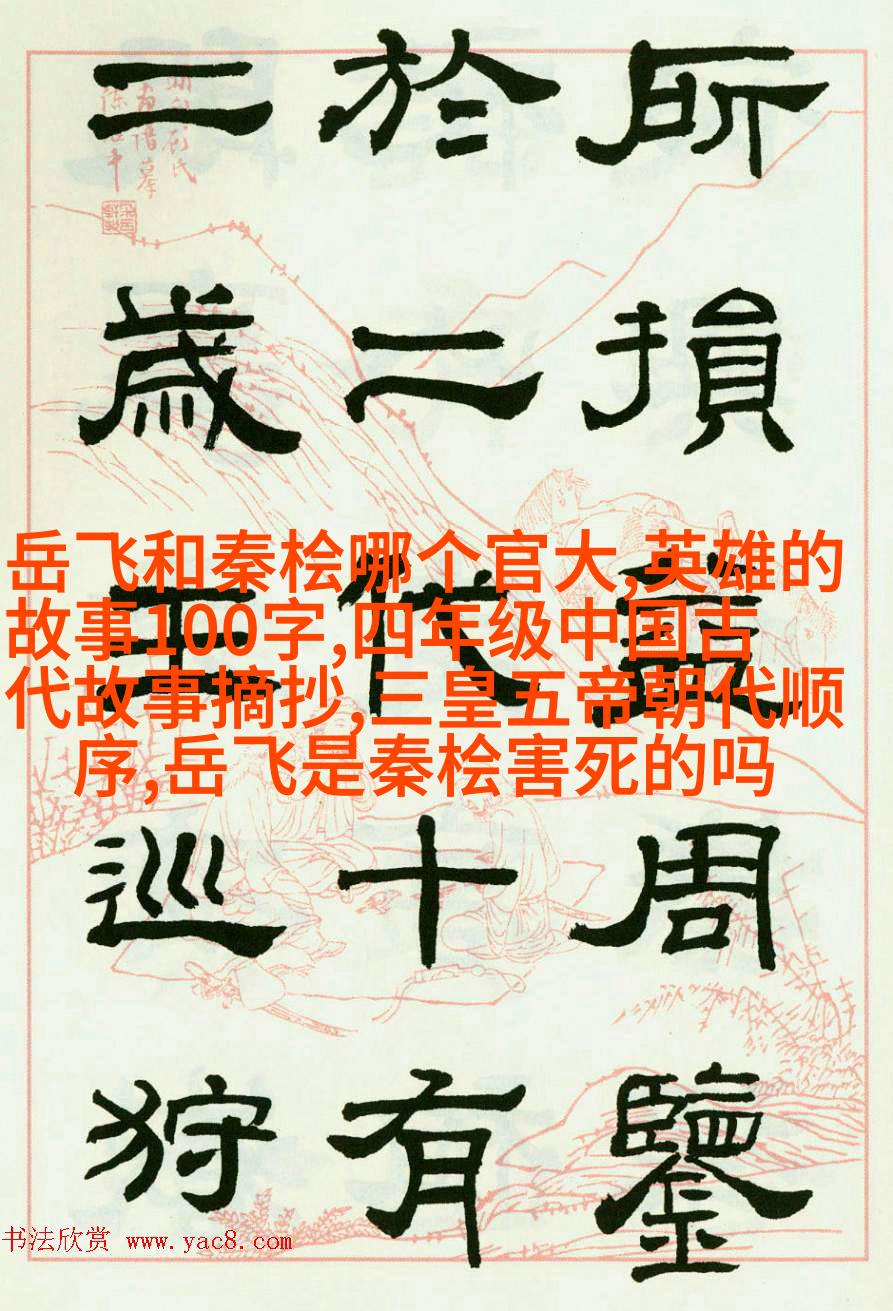 所損益周鑒
於二代十有
二歲王巡狩
岳飞和秦桧哪个官大,英雄的
故事100字,四年级中国古
代故事摘抄,三皇五帝朝代顺
序,岳飞是秦桧害死的吗
书法欣赏 www.yac8.com